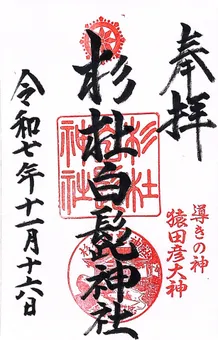 奉拝
導きの神
猿田彦大神
杉杜白髭神社
杉杜
神社
令和七年十一月十六日